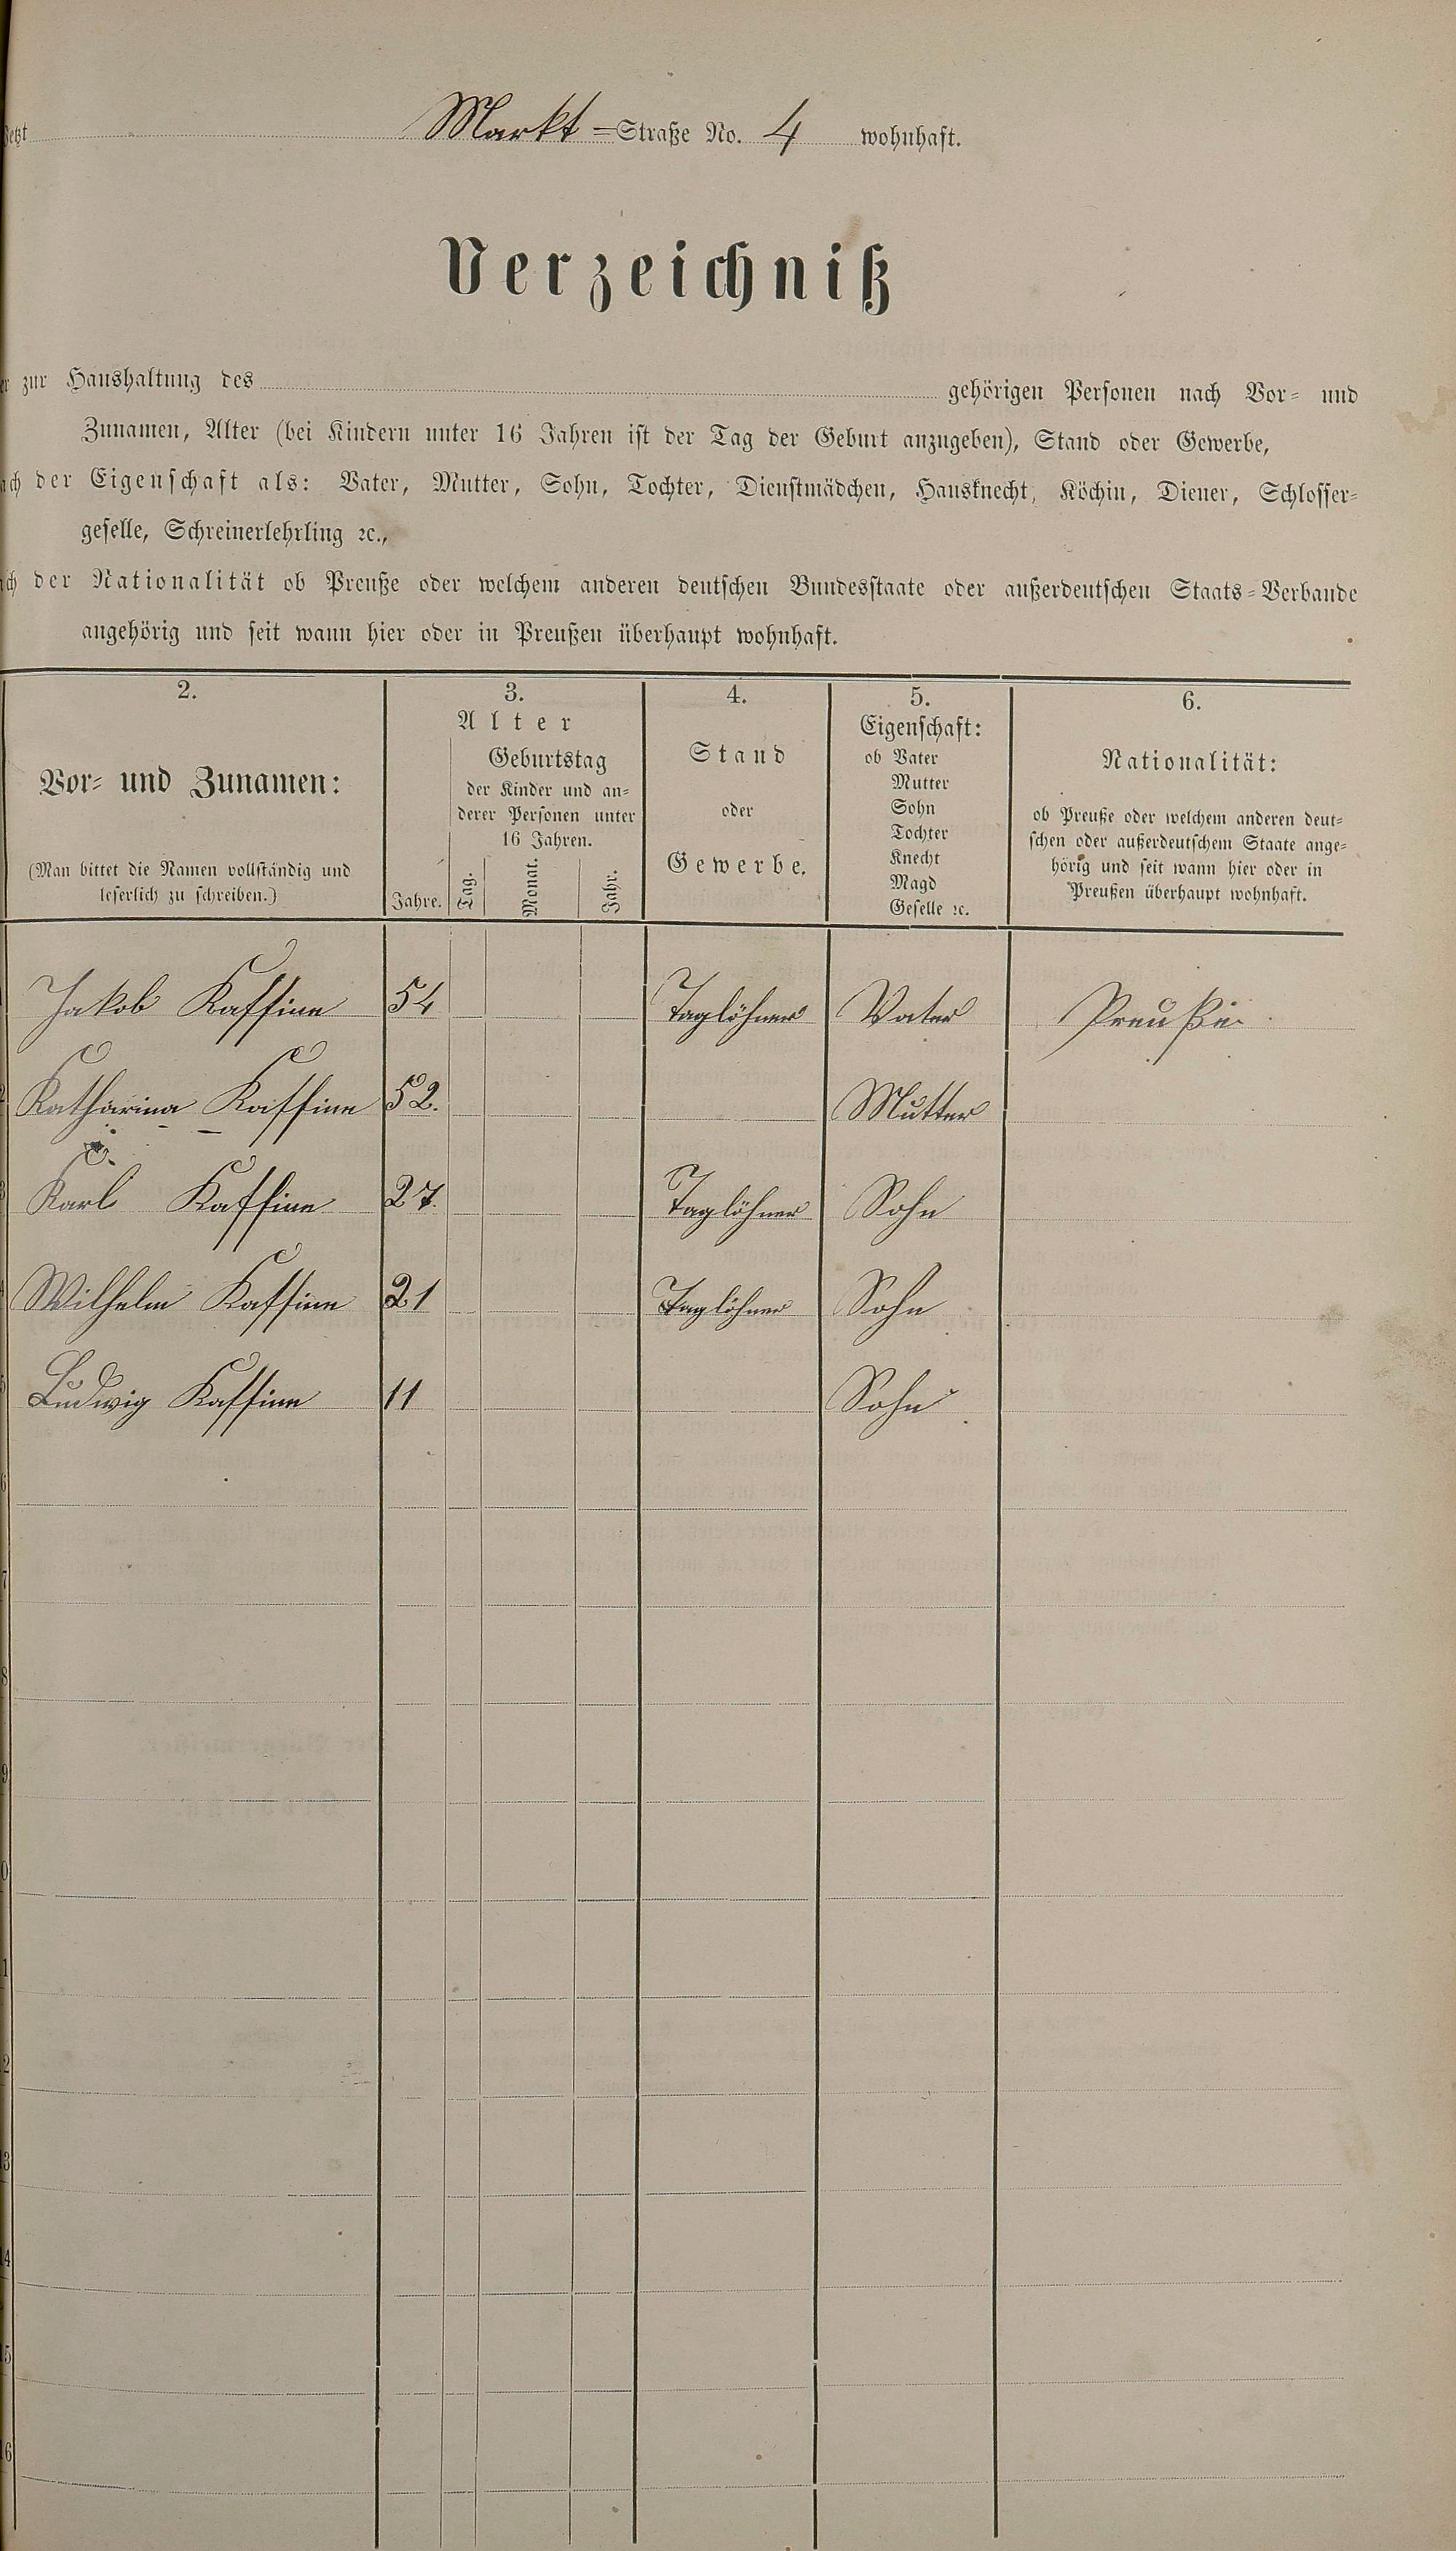 Jetzt Markt-Straße No. 4 wohnhaft.
Verzeichniß
zur Haushaltung des gehörigen Personen nach Vor- und
Zunamen, Alter (bei Kindern unter 16 Jahren ist der Tag der Geburt anzugeben), Stand oder Gewerbe,
der Eigenschaft als: Vater, Mutter, Sohn, Tochter, Dienstmädchen, Hausknecht, Köchin, Diener, Schlosser-
geselle, Schreinerlehrling ꝛc.,
der Nationalität ob Preuße oder welchem anderen deutschen Bundesstaate oder außerdeutschen Staats-Verbande
angehörig und seit wann hier oder in Preußen überhaupt wohnhaft.
2.
Vor- und Zunamen:
(Man bittet die Namen vollständig und
leserlich zu schreiben.)
3.
Alter
Geburtstag
der Kinder und an-
derer Personen unter
16 Jahren.
Jahre. Tag. Monat. Jahr.
4.
Stand
oder
Gewerbe.
5.
Eigenschaft:
ob Vater
Mutter
Sohn
Tochter
Knecht
Magd
Geselle ꝛc.
6.
Nationalität:
ob Preuße oder welchem anderen deut-
schen oder außerdeutschem Staate ange-
hörig und seit wann hier oder in
Preußen überhaupt wohnhaft.
Jakob Kaffine 54 Taglöhner Vater Preuße
Katharina Kaffine 52. Mutter
Karl Kaffine 27. Taglöhner Sohn
Wilhelm Kaffine 21 Taglöhner Sohn
Ludwig Kaffine 11 Sohn
6
7
8
9
0
1
2
3
4
5
6